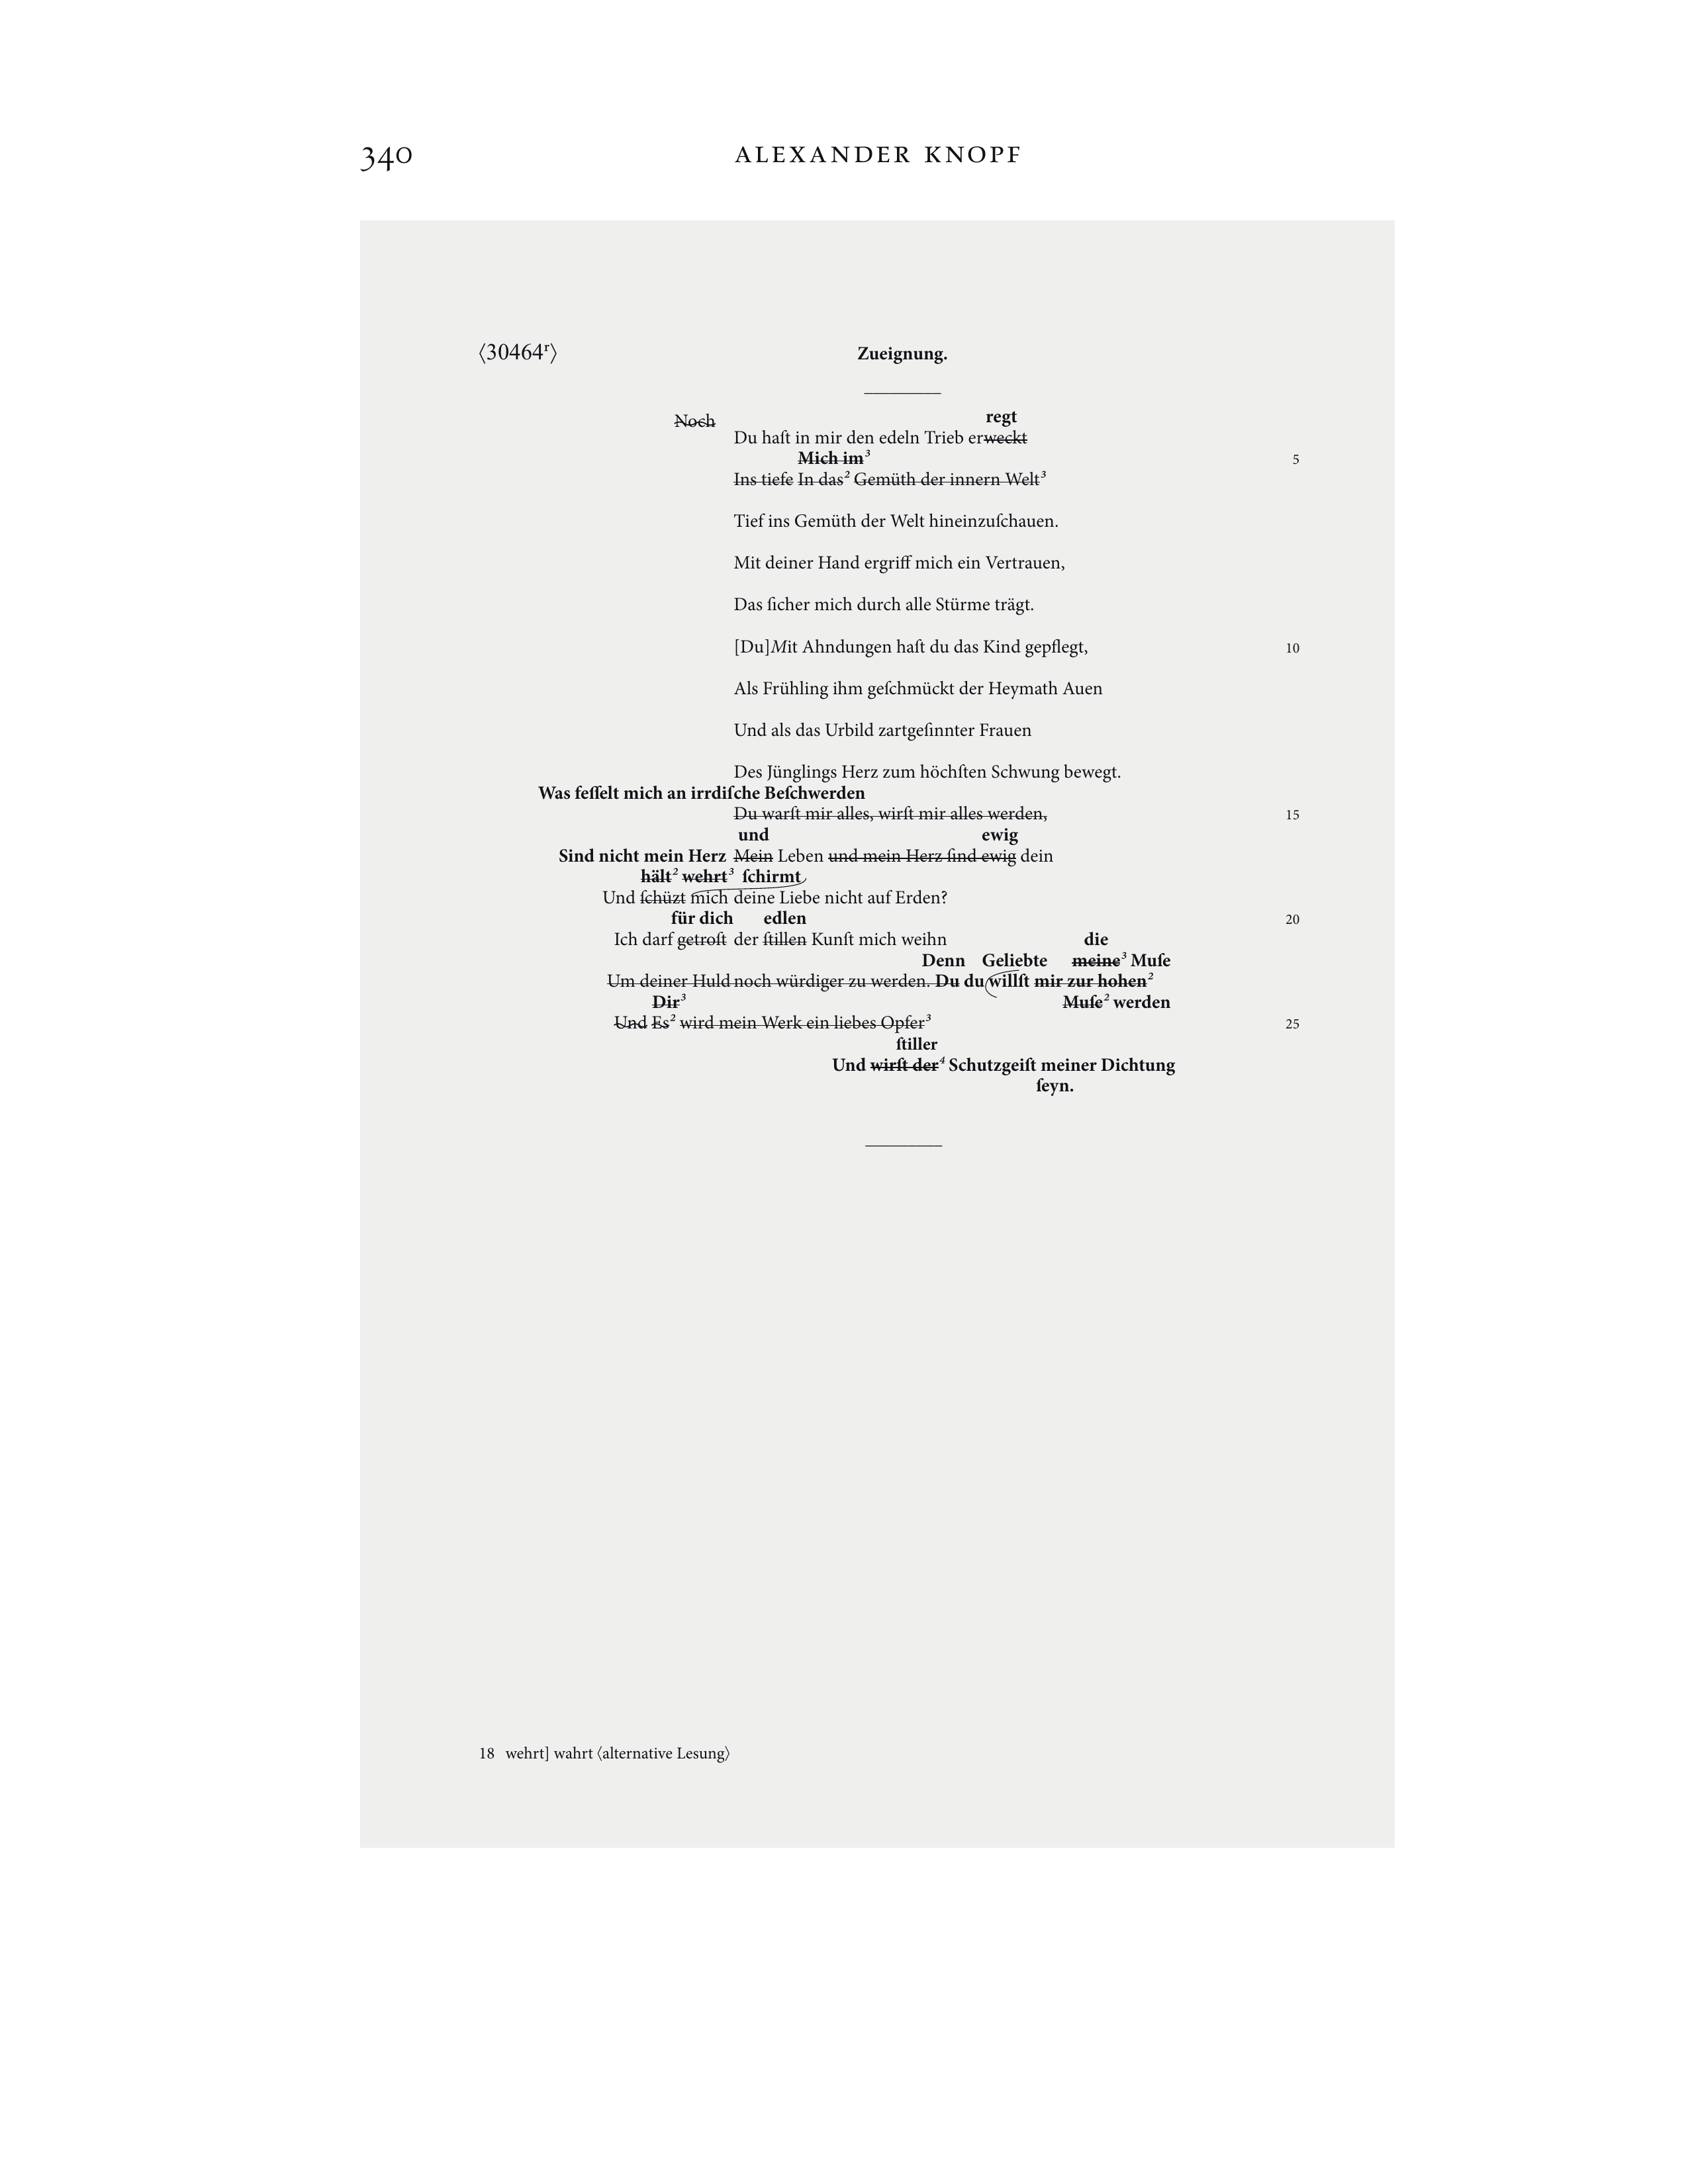 340
ALEXANDER KNOPF
⟨30464ʳ⟩
Zueignung.
Noch
regt
Du haſt in mir den edeln Trieb erweckt
Mich im³
5
Ins tiefe In das² Gemüth der innern Welt³
Tief ins Gemüth der Welt hineinzuſchauen.
Mit deiner Hand ergriff mich ein Vertrauen,
Das ſicher mich durch alle Stürme trägt.
[Du]Mit Ahndungen haſt du das Kind gepflegt,
10
Als Frühling ihm geſchmückt der Heymath Auen
Und als das Urbild zartgeſinnter Frauen
Des Jünglings Herz zum höchſten Schwung bewegt.
Was feſſelt mich an irrdiſche Beſchwerden
Du warſt mir alles, wirſt mir alles werden,
15
und ewig
Sind nicht mein Herz Mein Leben und mein Herz ſind ewig dein
hält² wehrt³ ſchirmt
Und ſchüzt mich deine Liebe nicht auf Erden?
für dich edlen
20
Ich darf getroſt der ſtillen Kunſt mich weihn
die
Denn Geliebte meine³ Muſe
Um deiner Huld noch würdiger zu werden. Du du willſt mir zur hohen²
Dir³
Muſe² werden
Und Es² wird mein Werk ein liebes Opfer³
25
ſtiller
Und wirſt der⁴ Schutzgeiſt meiner Dichtung
ſeyn.
18 wehrt] wahrt ⟨alternative Lesung⟩